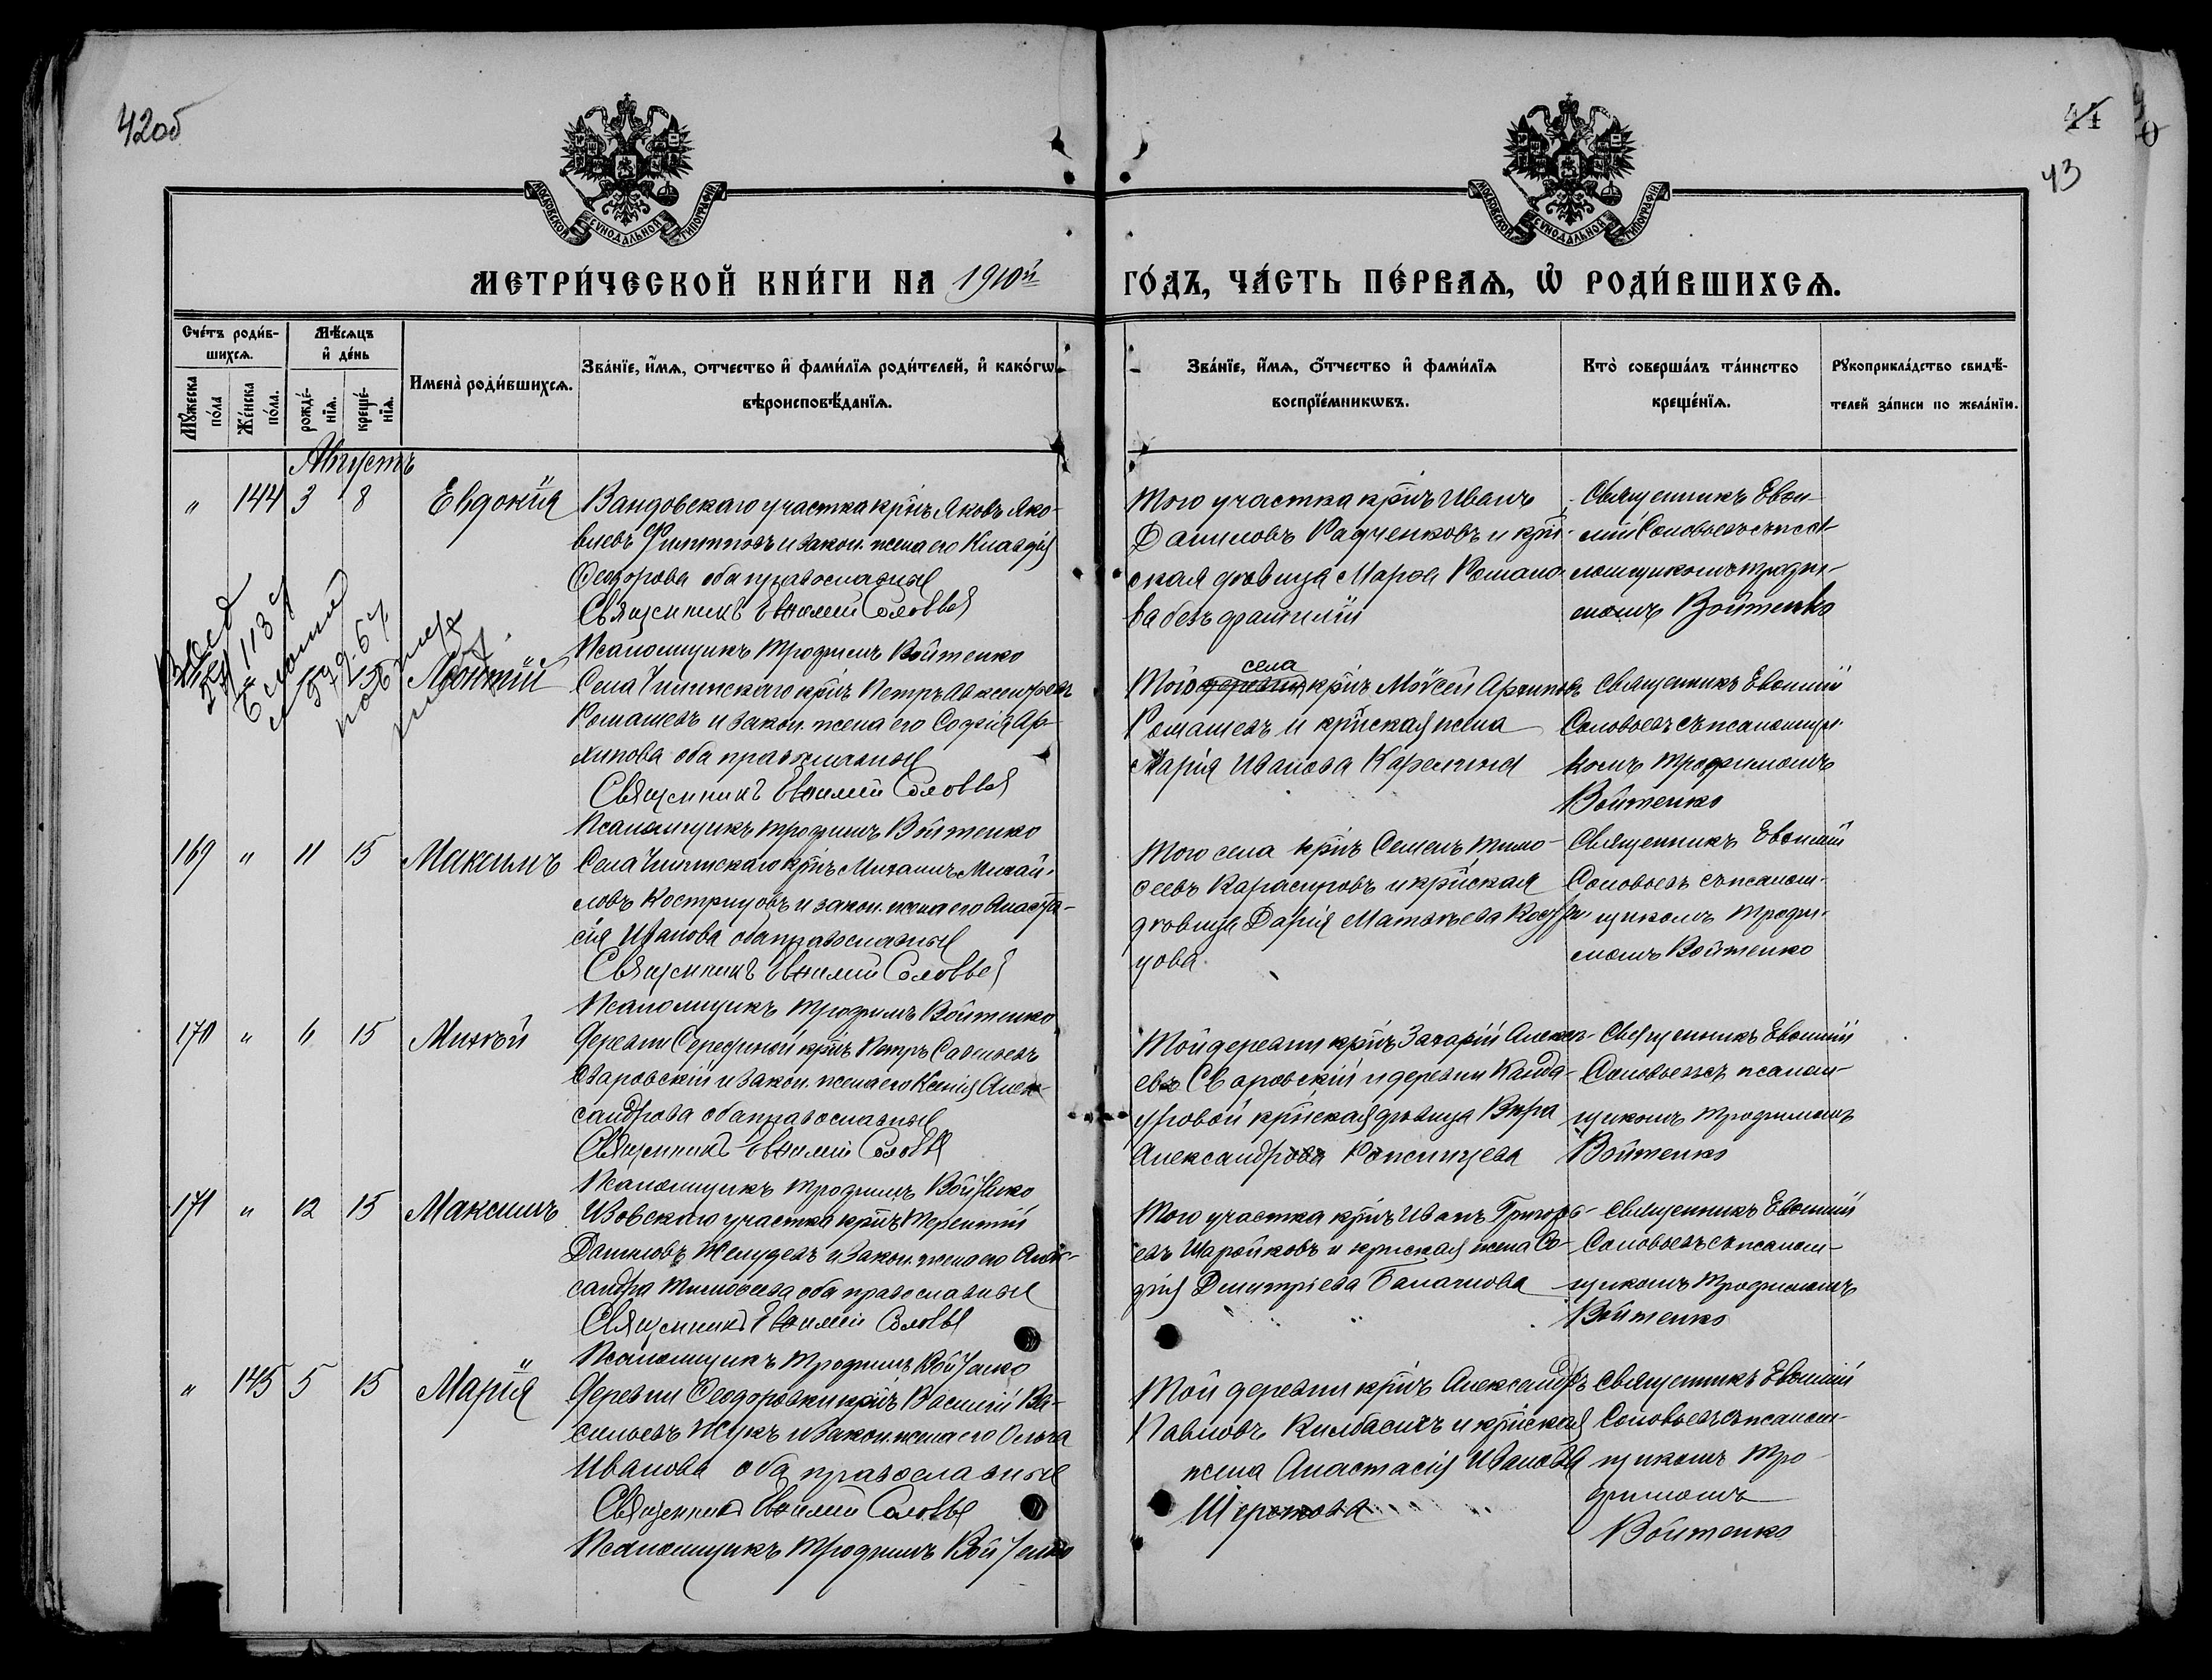 42об
44
43
МОСКОВСКОЙ СѴНОДАЛЬНОЙ ТИПОГРАФІИ
МОСКОВСКОЙ СѴНОДАЛЬНОЙ ТИПОГРАФІИ
МЕТРИ́ЧЕСКОЙ КНИ́ГИ НА 1910й ГО́ДЪ, ЧА́СТЬ ПЕ́РВАѦ, Ѡ҆ РОДИ́ВШИХСѦ.
Сче́тъ роди́в-
шихсѧ.
Мꙋ́жеска
по́ла
Же́нска
по́ла.
Мѣ́сѧцъ
и҆ де́нь
рожде́-
нїѧ.
креще́-
нїѧ.
Имена̀ роди́вшихсѧ.
Зва́нїе, и҆́мѧ, ѻ҆́тчество и҆ фами́лїѧ роди́телей, и҆ како́гѡ
вѣроисповѣ́данїѧ.
Зва́нїе, и҆́мѧ, ѻ҆́тчество и҆ фами́лїѧ
воспрїе́мникѡвъ.
Кто̀ соверша́лъ та́инство
креще́нїѧ.
Рꙋкоприкла́дство свидѣ́-
телей за́писи по жела́нїю.
Августъ
" 144 3 8 Евдокія
Вандовскаго участка кр̃нъ Яковъ Яко-
влевъ Филиповъ и закон. жена его Клавдія
Ѳеодорова оба православные
Священникъ Евѳимій Соловьев
Псаломщикъ Трофимъ Войтенко
Того участка кр̃нъ Иванъ
Даниловъ Радченковъ и кр̃н-
ская дѣвица Марѳа Романо-
ва безъ фамиліи
Священникъ Евѳи-
мій Соловьевъ съ псал-
ломщикомъ Трофи-
момъ Войтенко
113
Леонтій
Села Чипинскаго кр̃нъ Петръ Александровъ
Ромашевъ и закон. жена его Софія Ар-
хипова оба православные
Священникъ Евѳимій Соловьев
Псаломщикъ Трофимъ Войтенко
Того деревни села кр̃нъ Моѵсей Архиповъ
Ромашевъ и кр̃нская жена
Марія Иванова Карелина
Священникъ Евѳимій
Соловьевъ съ псаломщи-
комъ Трофимомъ
Войтенко
169 " 11 15 Максимъ
Села Чипинскаго кр̃нъ Михаилъ Михай-
ловъ Кострицовъ и закон. жена его Анаста-
сія Иванова оба православные
Священникъ Евѳимій Соловьев
Псаломщикъ Трофимъ Войтенко
Того села кр̃нъ Семенъ Тимо-
ѳеевъ Карасировъ и кр̃нская
дѣвица Дарія Матвѣева Костри-
цова
Священникъ Евѳимій
Соловьевъ съ псалом-
щикомъ Трофи-
момъ Войтенко
170 " 11 15 Михѣй
Деревни кр̃нъ Петръ Савельевъ
Сваровскій и закон. жена его Ксенія Алек-
сандрова оба православные
Священникъ Евѳимій Соловьев
Псаломщикъ Трофимъ Войтенко
Той деревни кр̃нъ Захарій Алексе-
евъ Сваровскій и деревни Канда-
уровой кр̃нская дѣвица Вѣра
Александрова
Священникъ Евѳимій
Соловьевъ съ псалом-
щикомъ Трофимомъ
Войтенко
171 " 12 15 Максимъ
Изовскаго участка кр̃нъ Терентій
Даниловъ Желудевъ и закон. жена его Алек-
сандра Тимоѳеева оба православные
Священникъ Евѳимій Соловьев
Псаломщикъ Трофимъ Войтенко
Того участка кр̃нъ Иванъ Григорь-
евъ Шаройковъ и кр̃нская жена Со-
фія Дмитріева Балахнова
Священникъ Евѳимій
Соловьевъ съ псалом-
щикомъ Трофимомъ
Войтенко
" 145 5 15 Марія
Деревни Ѳеодоровки кр̃нъ Василій Ва-
сильевъ Жукъ и закон. жена его Ольга
Иванова оба православные
Священникъ Евѳимій Соловьев
Псаломщикъ Трофимъ Войтенко
Той деревни кр̃нъ Александръ
Павловъ Килбасихъ и кр̃нская
жена Анастасія Иванова
Священникъ Евѳимій
Соловьевъ съ псалом-
щикомъ Тро-
фимомъ
Войтенко